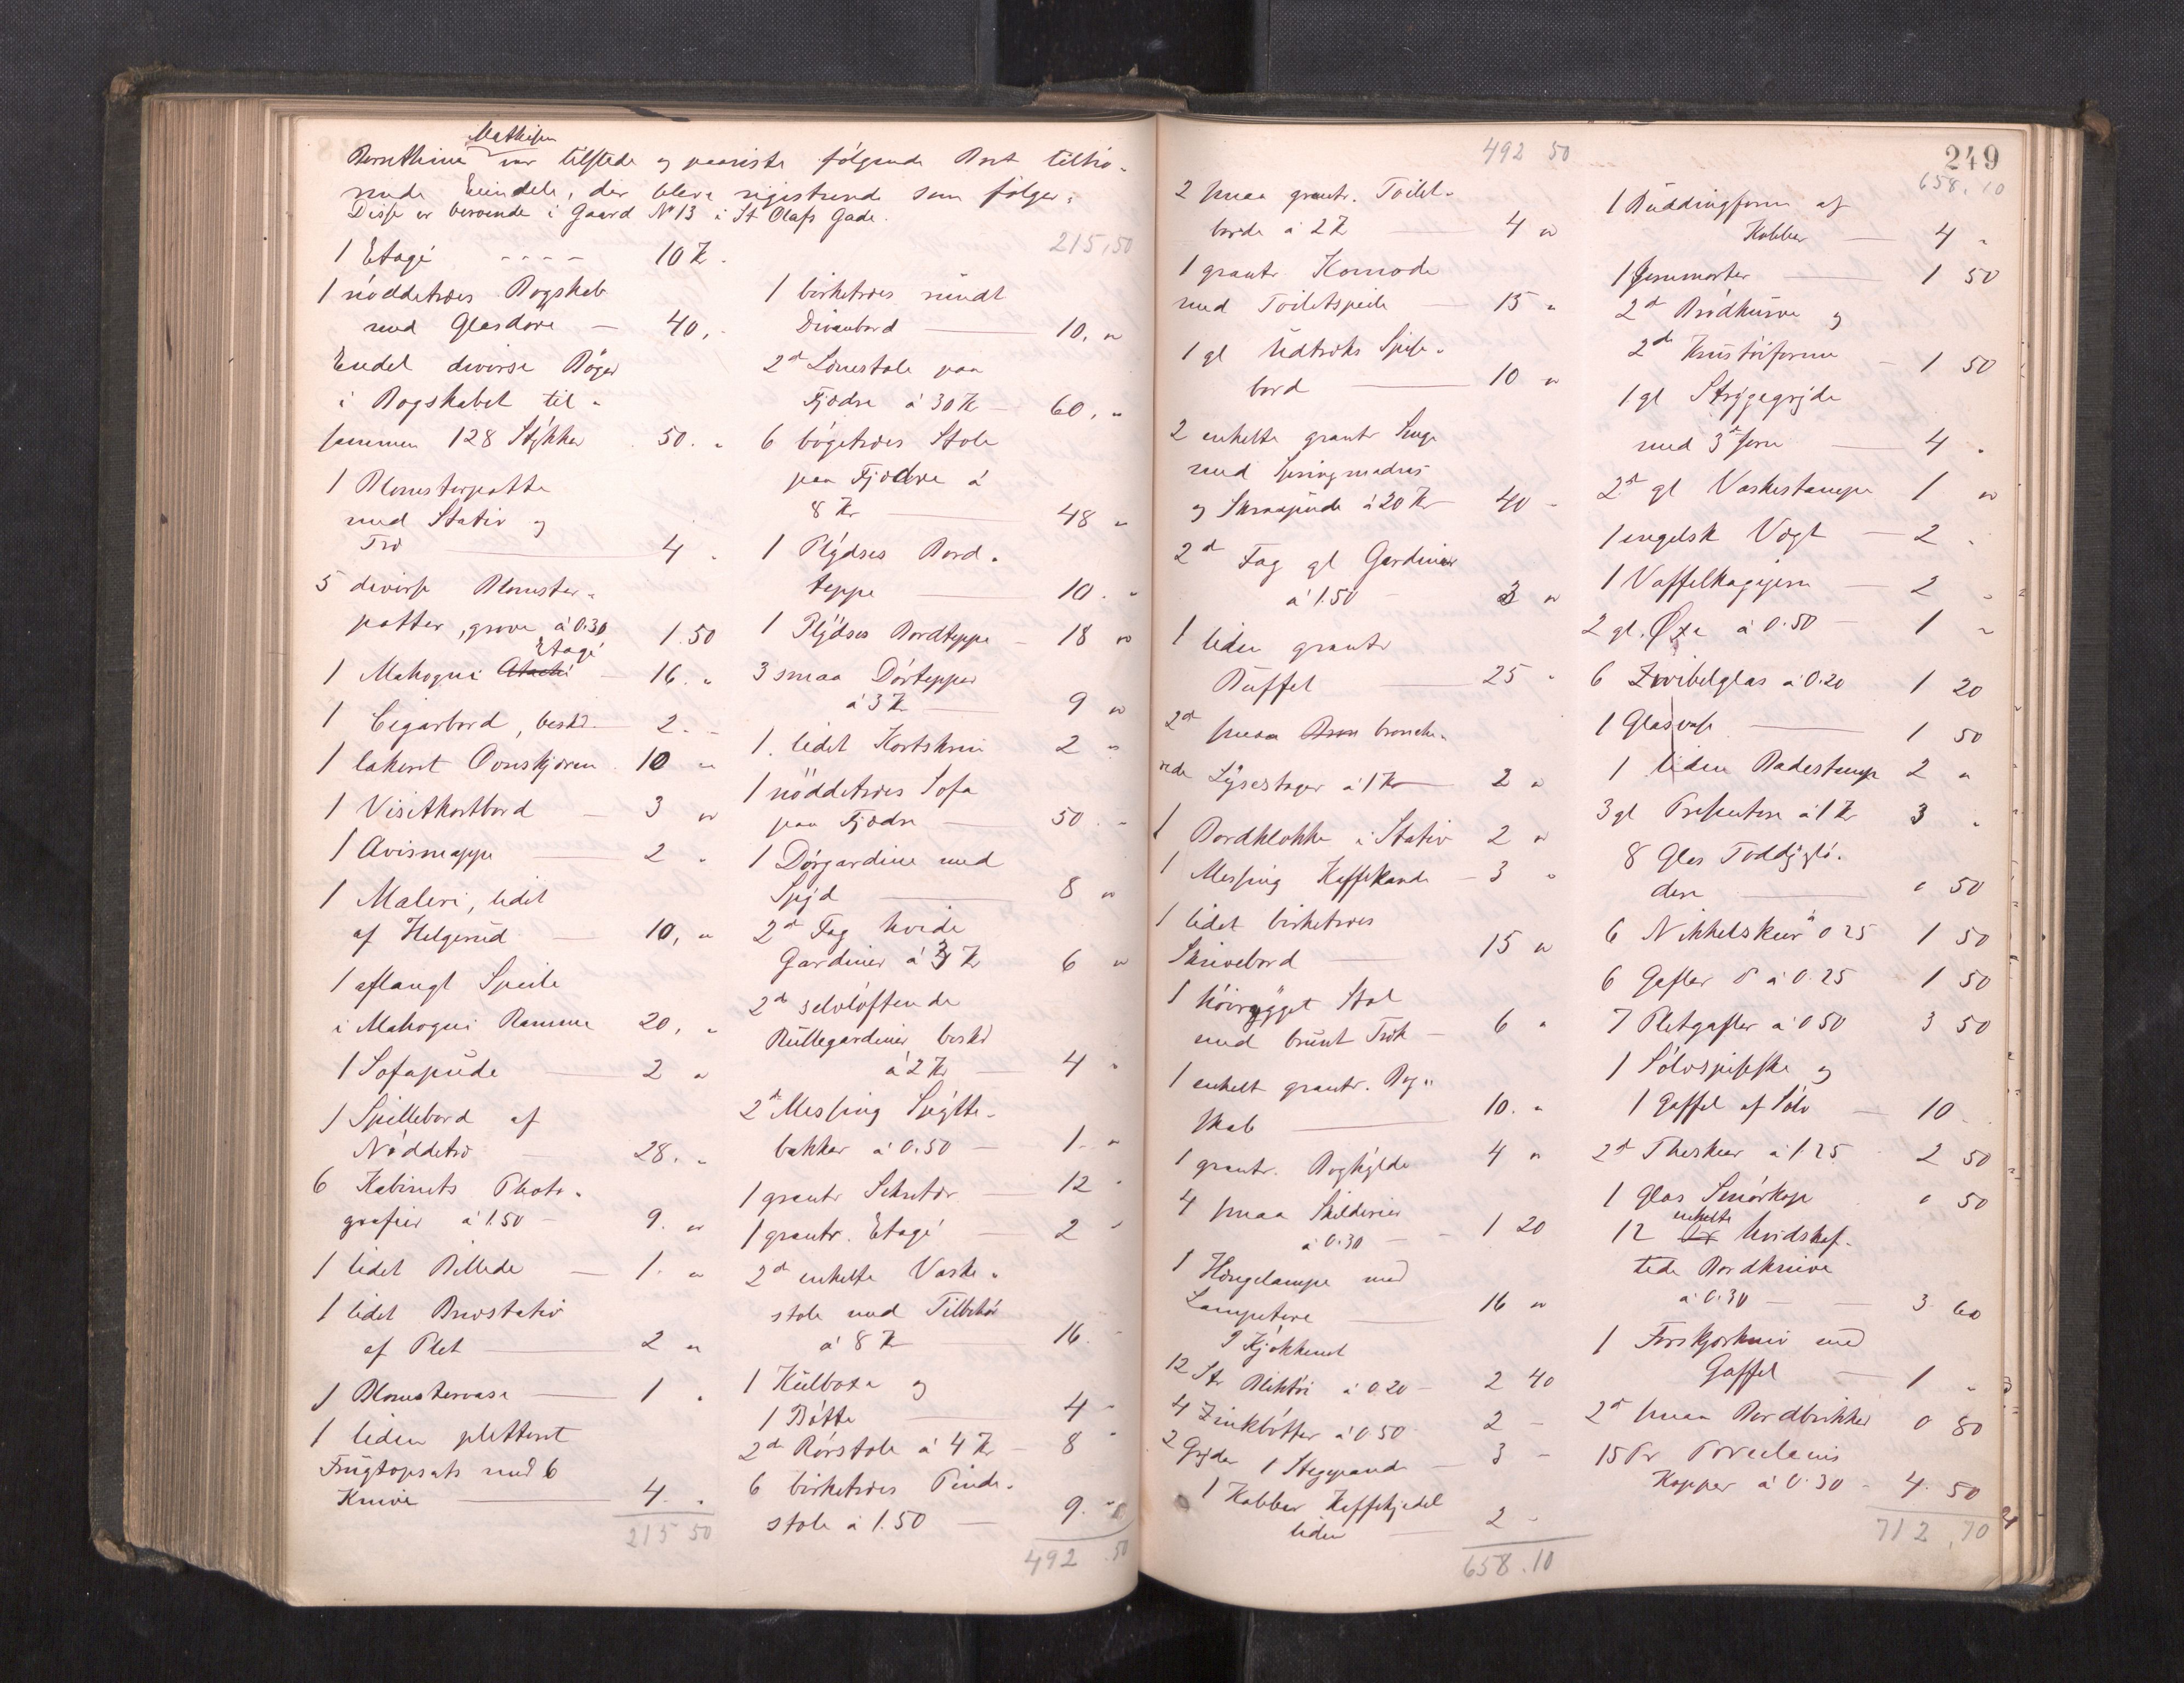 Mathisen
Bernthine var tilstede og paaviste følgende Boet tilhø-
rende Eiendele, der bleve registrerede som følger:
Disse er beroende i Gaard No 13 i St Olafs Gade.
1 Etagé - - - - 10 Kr.
1 nöddetræes Bogskab
med Glasdöre — 40, -
Endel diverse Böger
i Bogskabet til-
sammen 128 Stykker 50. "
1 Blomsterpotte
med Stativ og
Træ — 4 "
5 diverse Blomster-
potter, grove á 0.30 1.50
Etagé
1 Mahogni Atachi — 16. "
1 Cigarbord, besk. — 2. -
1 lakeret Ovnskjærm 10 "
1 Visitkortbord — 3 "
1 Avismappe — 2 "
1 Maleri, lidet
af Helgerud — 10, "
1 aflangt Speile
i Mahogni Ramme 20, "
1 Sofapude — 2 "
1 Spillebord af
Nøddetræ — 28. "
6 Kabinets Photo-
grafier á 1.50 — 9. "
1 lidet Billede — 1. "
1 lidet Brevstativ
af Plet — 2 "
1 Blomstervase — 1 "
1 liden pletteret
Frugtopsats med 6
Knive — 4. "
215 50
215,50
1 birketræes rundt
Divanbord — 10, "
2de Lænestole paa
Fjædre á 30 Kr — 60, "
6 bögetræes Stole
paa Fjædre á
8 Kr — 48 "
1 Plydses Bord-
teppe — 10. "
1 Plydses Bordteppe — 18 "
3 smaa Dörtepper
á 3 Kr — 9 "
1 lidet Kortskrin 2 "
1 nöddetræes Sofa
paa Fjædre — 50. "
1 Dörgardine med
Spyd — 8 "
2de Fag hvide
Gardiner á 3 Kr 6 "
2de selvløftende
Rullegardiner besk.
á 2 Kr — 4 "
2de Messing Spytte-
bakker á 0.50 — 1. "
1 grantr Sekretær — 12 "
1 grantr. Etagé — 2 "
2de enkelte Vaske-
stole med Tilbehör
á 8 Kr — 16. "
1 Kulboxe og
1 Bøtte — 4 "
2de Rørstole á 4 Kr — 8 "
6 birketræes Pinde-
stole á 1.50 — 9. "
492 .50
492 50
2 smaa grantr. Toilet-
borde á 2 Kr — 4 "
1 grantr Komode
med Toiletspeile — 15 "
1 gl Udtræks Spise-
bord — 10 "
2 enkelte grantr Senge
med Springmadras
og Skraapude á 20 Kr — 40 -
2de Fag gl Gardiner
á 1.50 — 3 "
1 liden grantr
Buffet — 25 "
2de smaa Bron bronche-
rede Lysestager á 1 Kr — 2 "
1 Bordklokke i Stativ 2 "
1 Messing Kaffekande — 3 "
1 lidet birketræes
Skrivebord — 15 "
1 höirygget Stol
med brunt Træk — 6 "
1 enkelt grantr. Bog-
skab — 10. "
1 grantr. Boghylde 4 "
4 smaa Skilderier
á 0.30 — 1 20
1 Hængelampe med
Lampetere — 16 "
I Kjøkkenet
12 St Bliktöi á 0.20 — 2 40
4 Zinkbøtter á 0.50 2 -
2 Gryder 1 Stegepande — 3 -
1 Kobber Kaffekjedel
liden — 2 -
658.10
249
658.10
1 Buddingform af
Kobber — 4 "
1 Jernmorter — 1 50
2de Brødkurve og
2de Forme — 1 50
1 gl Strygegryde
med 3de Jern — 4 "
2de gl Vaskestampe 1 "
1 engelsk Vægt — 2 "
1 Vaffelkagejern — 2 "
2 gl. Øxe á 0.50 — 1 "
6 Zwibelglas á 0.20 1 20
1 Glasvase — 1 50
1 liden Badestamp 2 "
3 gl Presenter á 1 Kr 3 "
8 Glas Toddyglö-
dere — " 50
6 Nikkelskeer á 0 25 1 50
6 Gafler do á 0.25 1 50
7 Pletgafler á 0 50 3 50
1 Sölvspiseske og
1 Gaffel af Sölv — 10
2de Theskeer á 1.25 2 50
1 Glas Smörkop " 50
enkelte
12 hvidskaf-
tede Bordknive
á 0.30 — 3. 60
1 Forskjærkniv med
Gaffel — 1 "
2de smaa Bordbrikker 0 80
15 Pr Porcelains
Kopper á 0.30 — 4. 50
712,70